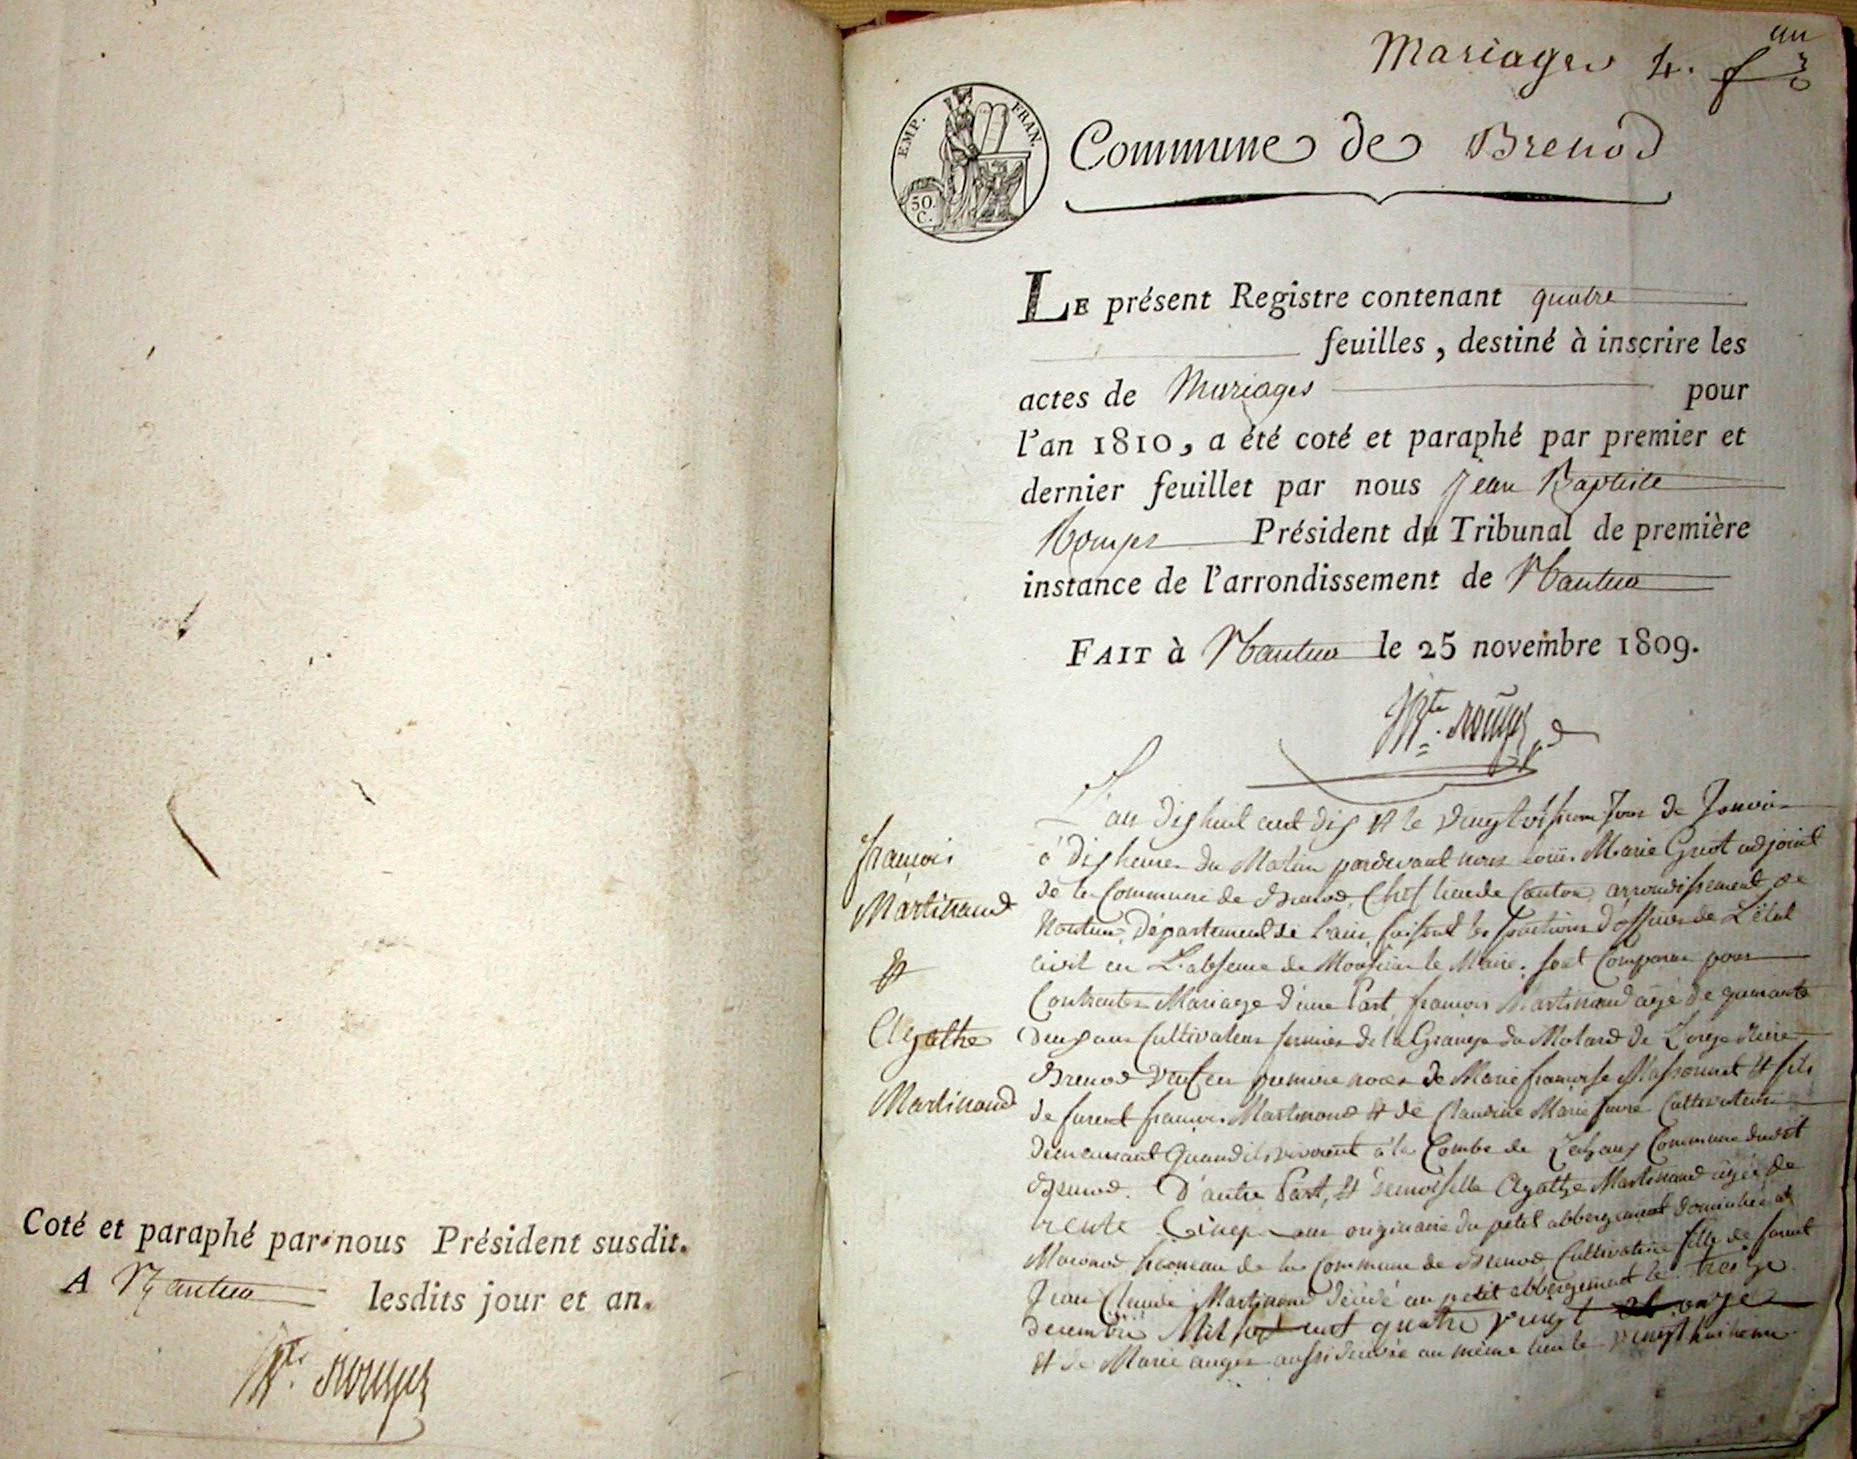 Coté et paraphé par nous Président susdit.
A Nantua lesdits jour et an.
Bte. Rouyer
Mariages 4. f
un
EMP. FRAN.
50.
C.
Commune de Brenod
LE présent Registre contenant quatre
feuilles, destiné à inscrire les
actes de Mariages pour
l'an 1810, a été coté et paraphé par premier et
dernier feuillet par nous Jean Baptiste
Rouyer Président du Tribunal de première
instance de l'arrondissement de Nantua
FAIT à Nantua le 25 novembre 1809.
Bte. Rouyer
françois
Martinand
et
Agathe
Martinand
L'an dix huit cent dix et le jour de Janvier
à dix heures du Matin pardevant nous Louis Marie Griot adjoint
de la Commune de Brenod, Chef lieu de Canton, arrondissement de
Nantua, Département de l'ain, faisant les fonctions d'officier de L'état
civil en L'absence de Monsieur le Maire. sont Comparus pour
Contracter Mariage d'une Part, françois Martinand agé de quarante
deux ans Cultivateur fermier de la Grange du Molard de Lorge
Brenod veuf en premiere noces de Marie françoise Massonnet et fils
de furent françois Martinand et de Claudine Marie favre Cultivateurs
demeurant Quand ils vivoient à la Combe de Commune dudit
Brenod. D'autre Part, et demoiselle Agathe Martinand agée de
trente Cinq ans originaire du petit abbergement domiciliée à
Macconod hameau de la Commune de Brenod, Cultivatrice fille de furent
Jean Claude Martinand décédé au petit abbergement le treize
decembre Mil sept cent quatre vingt onze
et de Marie auger aussi décédée au même lieu le vingt huitieme